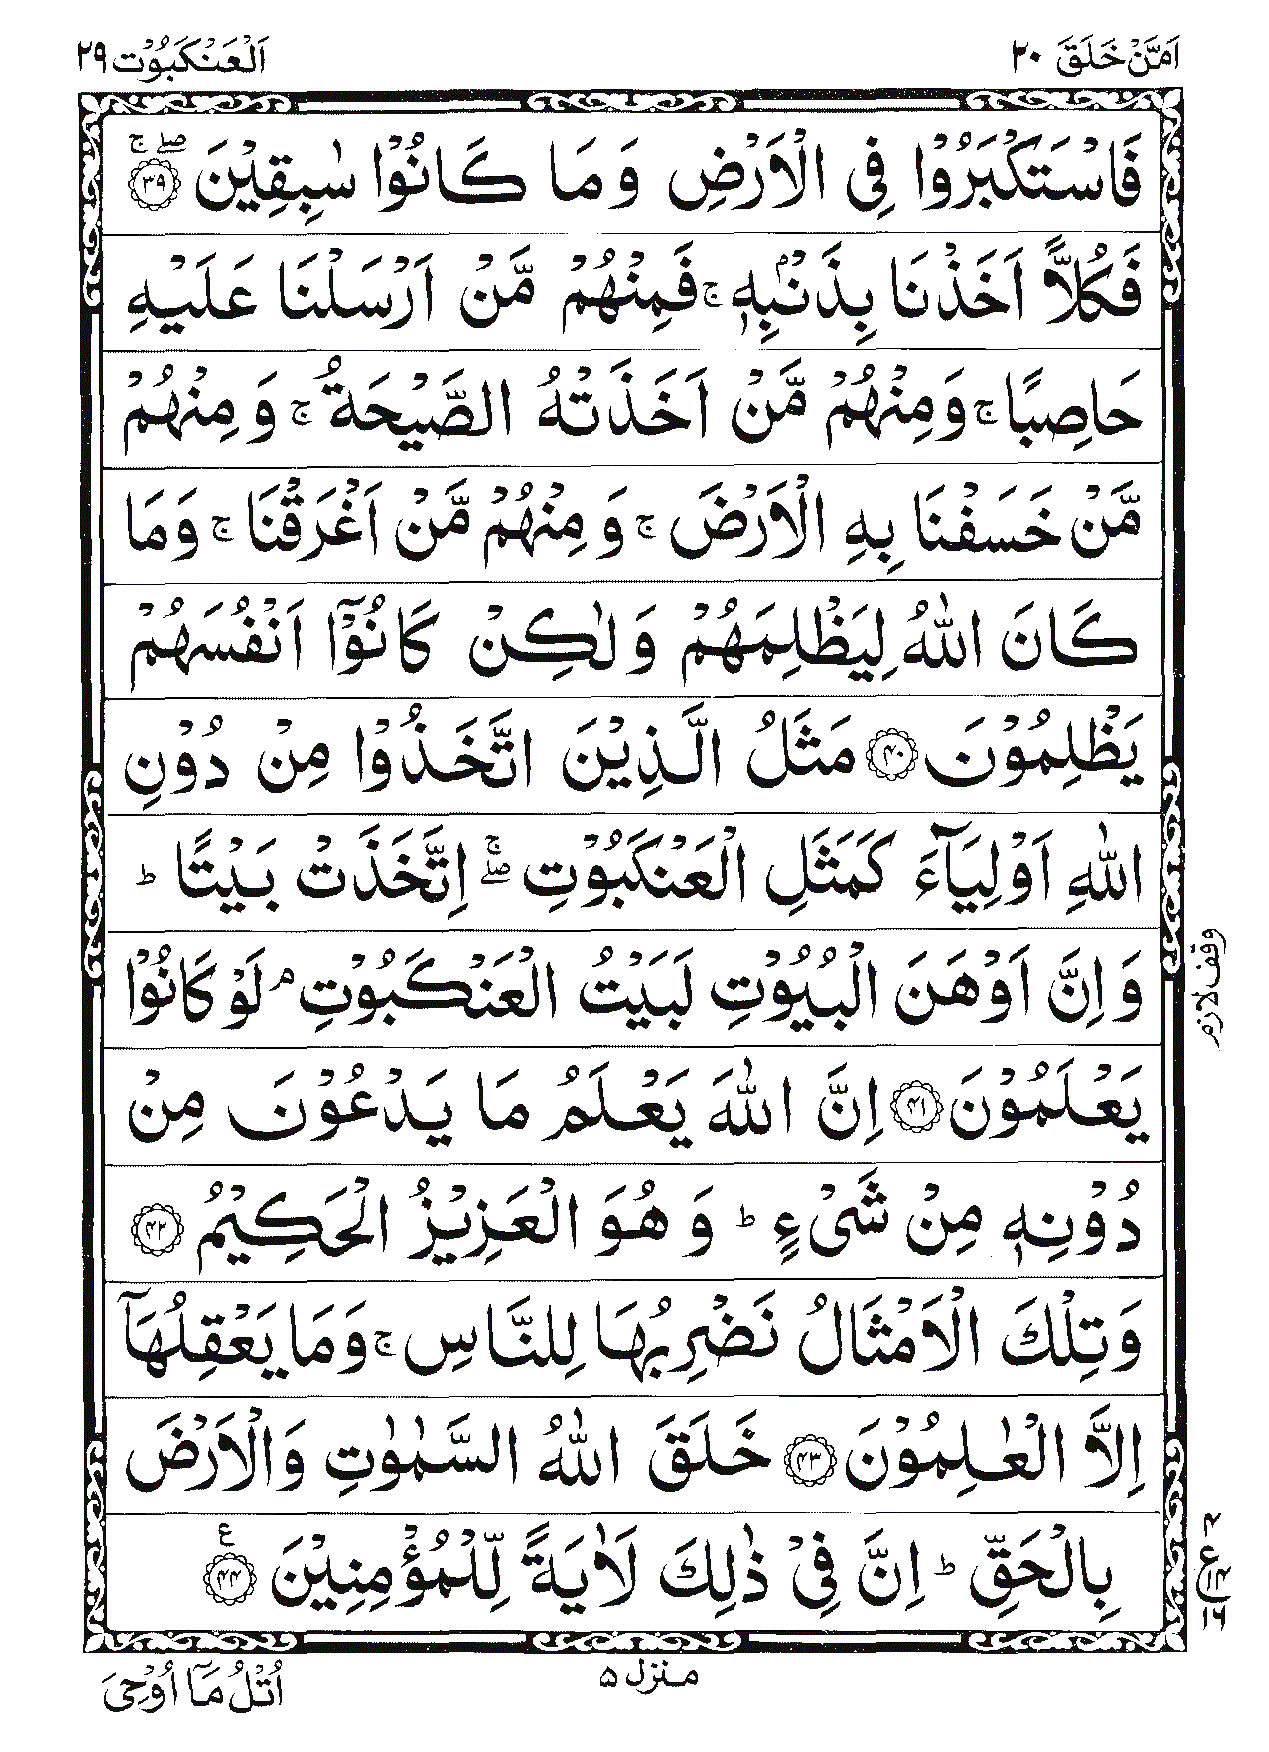 اَمَّنْ خَلَقَ ۲۰
اَلْعَنْكَبُوْت ۲۹
فَاسْتَكْبَرُوْا فِی الْاَرْضِ وَ مَا كَانُوْا سٰبِقِیْنَ ۖۚ ﴿۳۹﴾
فَكُلًّا اَخَذْنَا بِذَنْۢبِهٖ ۚ فَمِنْهُمْ مَّنْ اَرْسَلْنَا عَلَیْهِ
حَاصِبًا ۚ وَ مِنْهُمْ مَّنْ اَخَذَتْهُ الصَّیْحَةُ ۚ وَ مِنْهُمْ
مَّنْ خَسَفْنَا بِهِ الْاَرْضَ ۚ وَ مِنْهُمْ مَّنْ اَغْرَقْنَا ۚ وَ مَا
كَانَ اللّٰهُ لِیَظْلِمَهُمْ وَ لٰكِنْ كَانُوْۤا اَنْفُسَهُمْ
یَظْلِمُوْنَ ﴿۴۰﴾ مَثَلُ الَّذِیْنَ اتَّخَذُوْا مِنْ دُوْنِ
اللّٰهِ اَوْلِیَآءَ كَمَثَلِ الْعَنْكَبُوْتِ ۖۚ اِتَّخَذَتْ بَیْتًا ؕ
وَ اِنَّ اَوْهَنَ الْبُیُوْتِ لَبَیْتُ الْعَنْكَبُوْتِ ۘ لَوْ كَانُوْا
وقف لازم
یَعْلَمُوْنَ ﴿۴۱﴾ اِنَّ اللّٰهَ یَعْلَمُ مَا یَدْعُوْنَ مِنْ
دُوْنِهٖ مِنْ شَیْءٍ ؕ وَ هُوَ الْعَزِیْزُ الْحَكِیْمُ ﴿۴۲﴾
وَ تِلْكَ الْاَمْثَالُ نَضْرِبُهَا لِلنَّاسِ ۚ وَ مَا یَعْقِلُهَاۤ
اِلَّا الْعٰلِمُوْنَ ﴿۴۳﴾ خَلَقَ اللّٰهُ السَّمٰوٰتِ وَ الْاَرْضَ
بِالْحَقِّ ؕ اِنَّ فِیْ ذٰلِكَ لَاٰیَةً لِّلْمُؤْمِنِیْنَ ﴿۴۴﴾ ع
۴ ع ۱۴ ۱۶
منزل ۵
اُتْلُ مَاۤ اُوْحِیَ